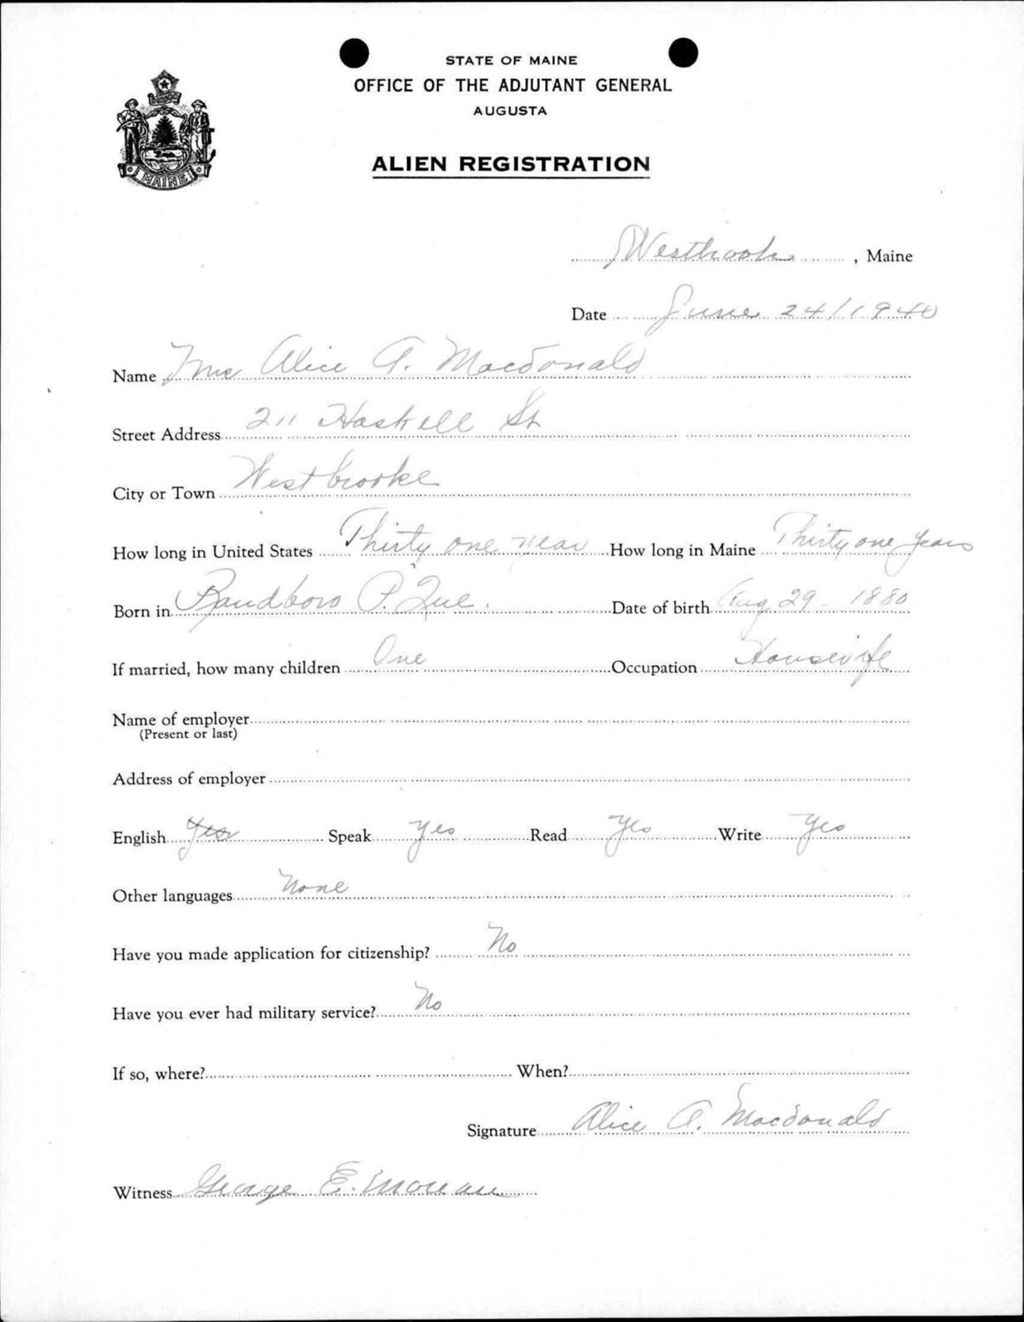 STATE OF MAINE
OFFICE OF THE ADJUTANT GENERAL
AUGUSTA
ALIEN REGISTRATION
MAINE
Westbrook, Maine
Date June 24/1940
Name Mrs Alice A. Macdonald
Street Address 211 Haskell St
City or Town Westbrooke
How long in United States Thirty one year How long in Maine Thirty one years
Born in P. Que. Date of birth Aug 29 - 1880
If married, how many children One Occupation Housewife
Name of employer
(Present or last)
Address of employer
English Yes Speak Yes Read Yes Write Yes
Other languages None
Have you made application for citizenship? No
Have you ever had military service? No
If so, where? When?
Signature Alice A. Macdonald
Witness George E.